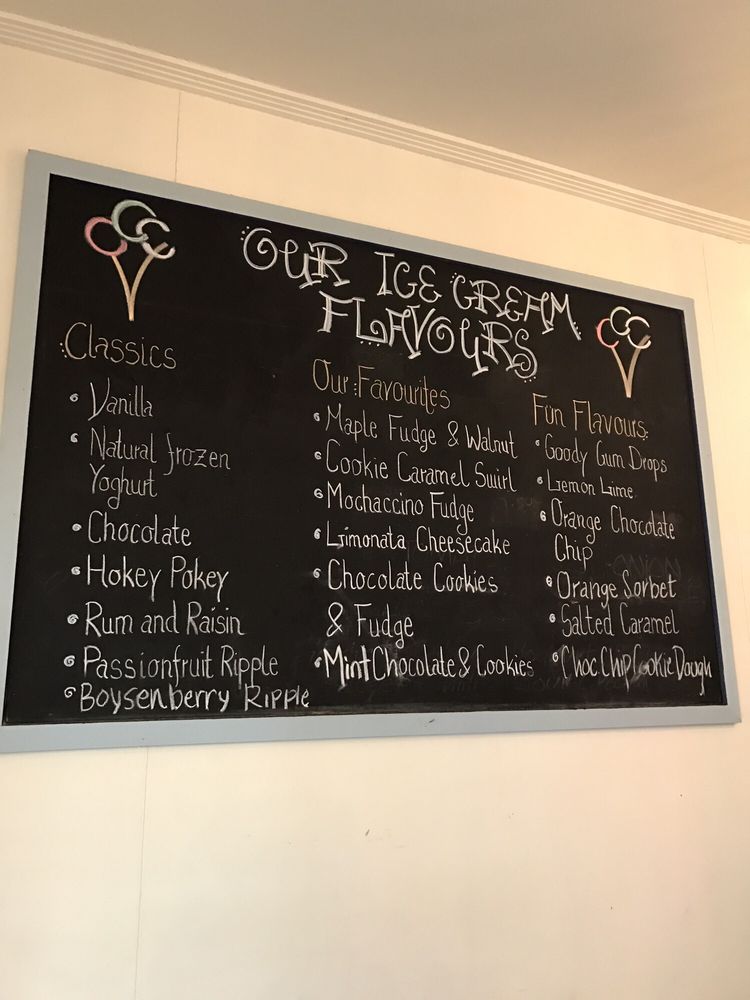 OUR ICE CREAM
FLAVOURS
Classics
Vanilla
Natural frozen
Yoghurt
Chocolate
Hokey Pokey
Rum and Raisin
Passionfruit Ripple
Boysenberry Ripple
Our Favourites
Maple Fudge & Walnut
Cookie Caramel Swirl
Mochaccino Fudge
Limonata Cheesecake
Chocolate Cookies
& Fudge
Mint Chocolate & Cookies
Fun Flavours:
Goody Gum Drops
Lemon Lime
Orange Chocolate
Chip
Orange Sorbet
Salted Caramel
Choc Chip Cookie Dough